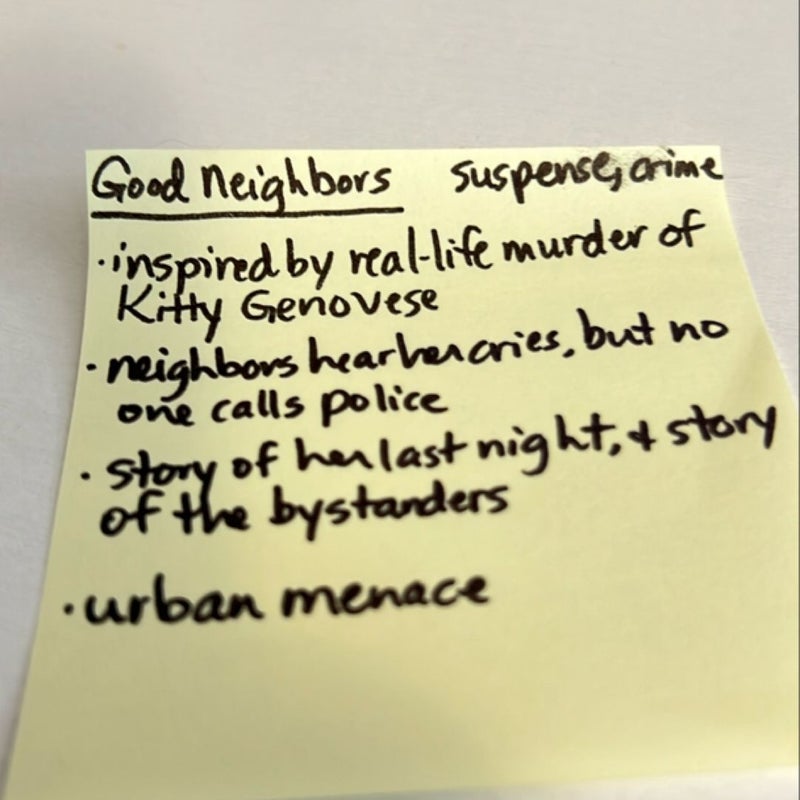 Good Neighbors suspense, crime
· inspired by real-life murder of
Kitty Genovese
· neighbors hear her cries, but no
one calls police
· story of her last night, & story
of the bystanders
· urban menace